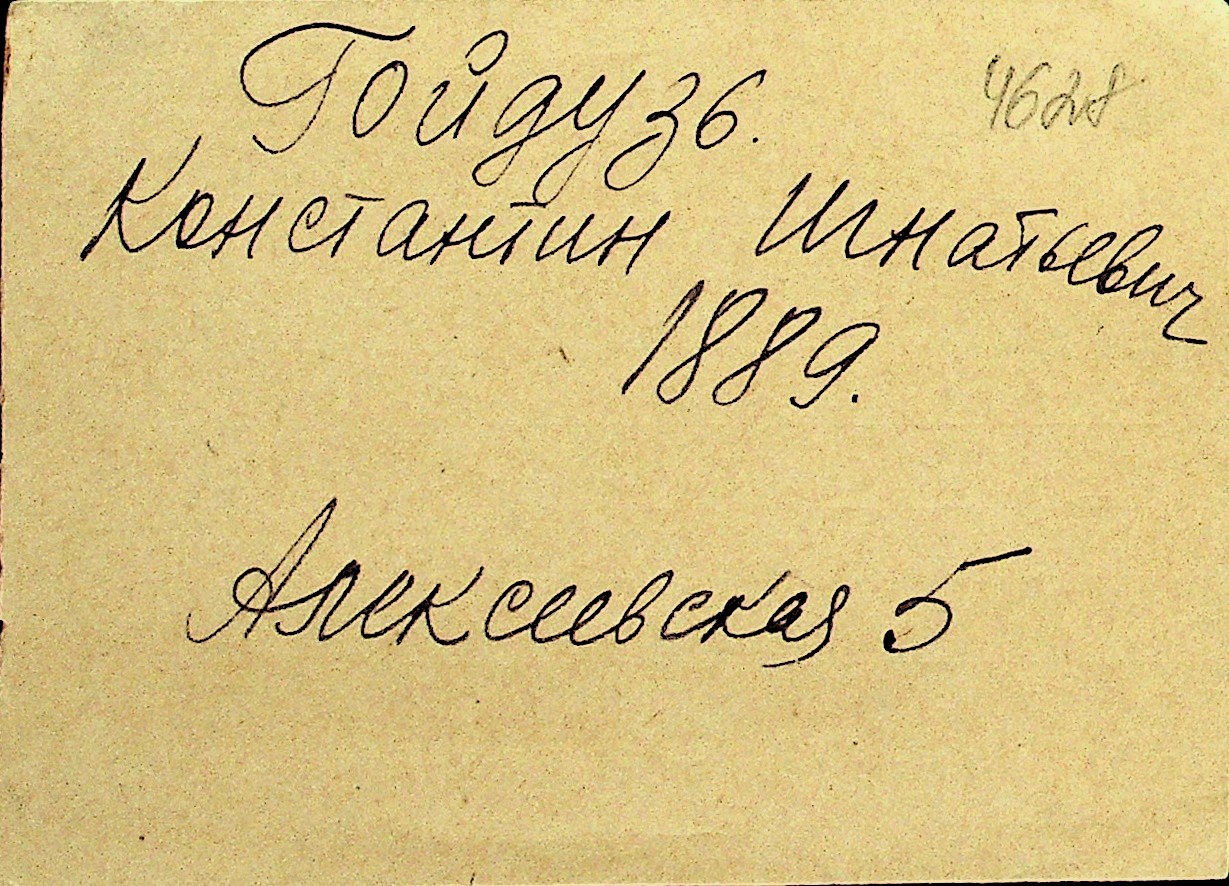 Гойдузь. 4628
Константин Игнатьевич
1889.
Алексеевская 5